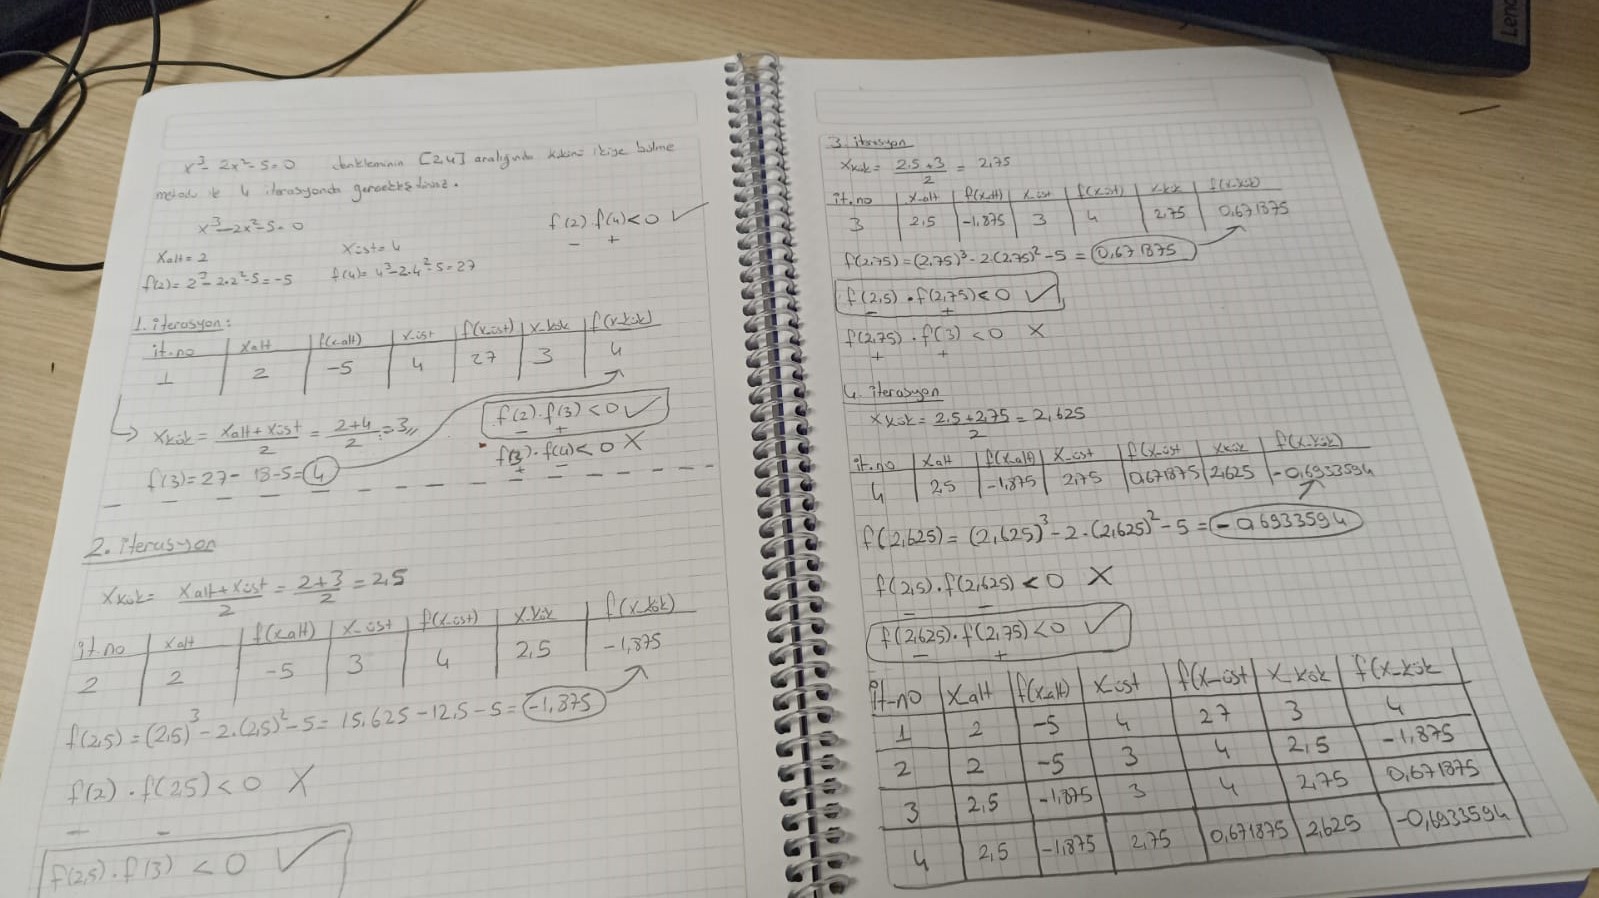 x³ - 2x² - 5 = 0 denkleminin [2,4] aralığında kökünü ikiye bölme
metodu ile 4 iterasyonda gerçekleştiriniz.
x³ - 2x² - 5 = 0
f(2) . f(4) < 0 ✓
- +
Xalt = 2 Xüst = 4
f(2) = 2³ - 2.2² - 5 = -5 f(4) = 4³ - 2.4² - 5 = 27
1. iterasyon:
it.no Xalt f(x_alt) X_üst f(x_üst) X_kök f(x_kök)
1 2 -5 4 27 3 4
Xkök = Xalt + Xüst / 2 = 2+4 / 2 = 3,,
f(2) . f(3) < 0 ✓
- +
f(3) . f(4) < 0 X
+ -
f(3) = 27 - 18 - 5 = 4
2. iterasyon
Xkök = Xalt + Xüst / 2 = 2+3 / 2 = 2,5
it.no Xalt f(xalt) X_üst f(x_üst) X_kök f(x_kök)
2 2 -5 3 4 2,5 -1,875
f(2,5) = (2,5)³ - 2.(2,5)² - 5 = 15,625 - 12,5 - 5 = -1,875
f(2) . f(2,5) < 0 X
- -
f(2,5) . f(3) < 0 ✓
3. iterasyon
Xkök = 2,5+3 / 2 = 2,75
it.no X_alt f(x_alt) X_üst f(x_üst) X_kök f(x_kök)
3 2,5 -1,875 3 4 2,75 0,671875
f(2,75) = (2,75)³ - 2.(2,75)² - 5 = 0,671875
f(2,5) . f(2,75) < 0 ✓
- +
f(2,75) . f(3) < 0 X
+ +
4. iterasyon
Xkök = 2,5+2,75 / 2 = 2,625
it.no Xalt f(x_alt) X_üst f(x_üst Xkök f(x_kök)
4 2,5 -1,875 2,75 0,671875 2,625 -0,6933594
f(2,625) = (2,625)³ - 2.(2,625)² - 5 = -0,6933594
f(2,5) . f(2,625) < 0 X
- -
f(2,625) . f(2,75) < 0 ✓
- +
it-no Xalt f(xalt) X_üst f(x_üst X_kök f(x_kök
1 2 -5 4 27 3 4
2 2 -5 3 4 2,5 -1,875
3 2,5 -1,875 3 4 2,75 0,671875
4 2,5 -1,875 2,75 0,671875 2,625 -0,6933594